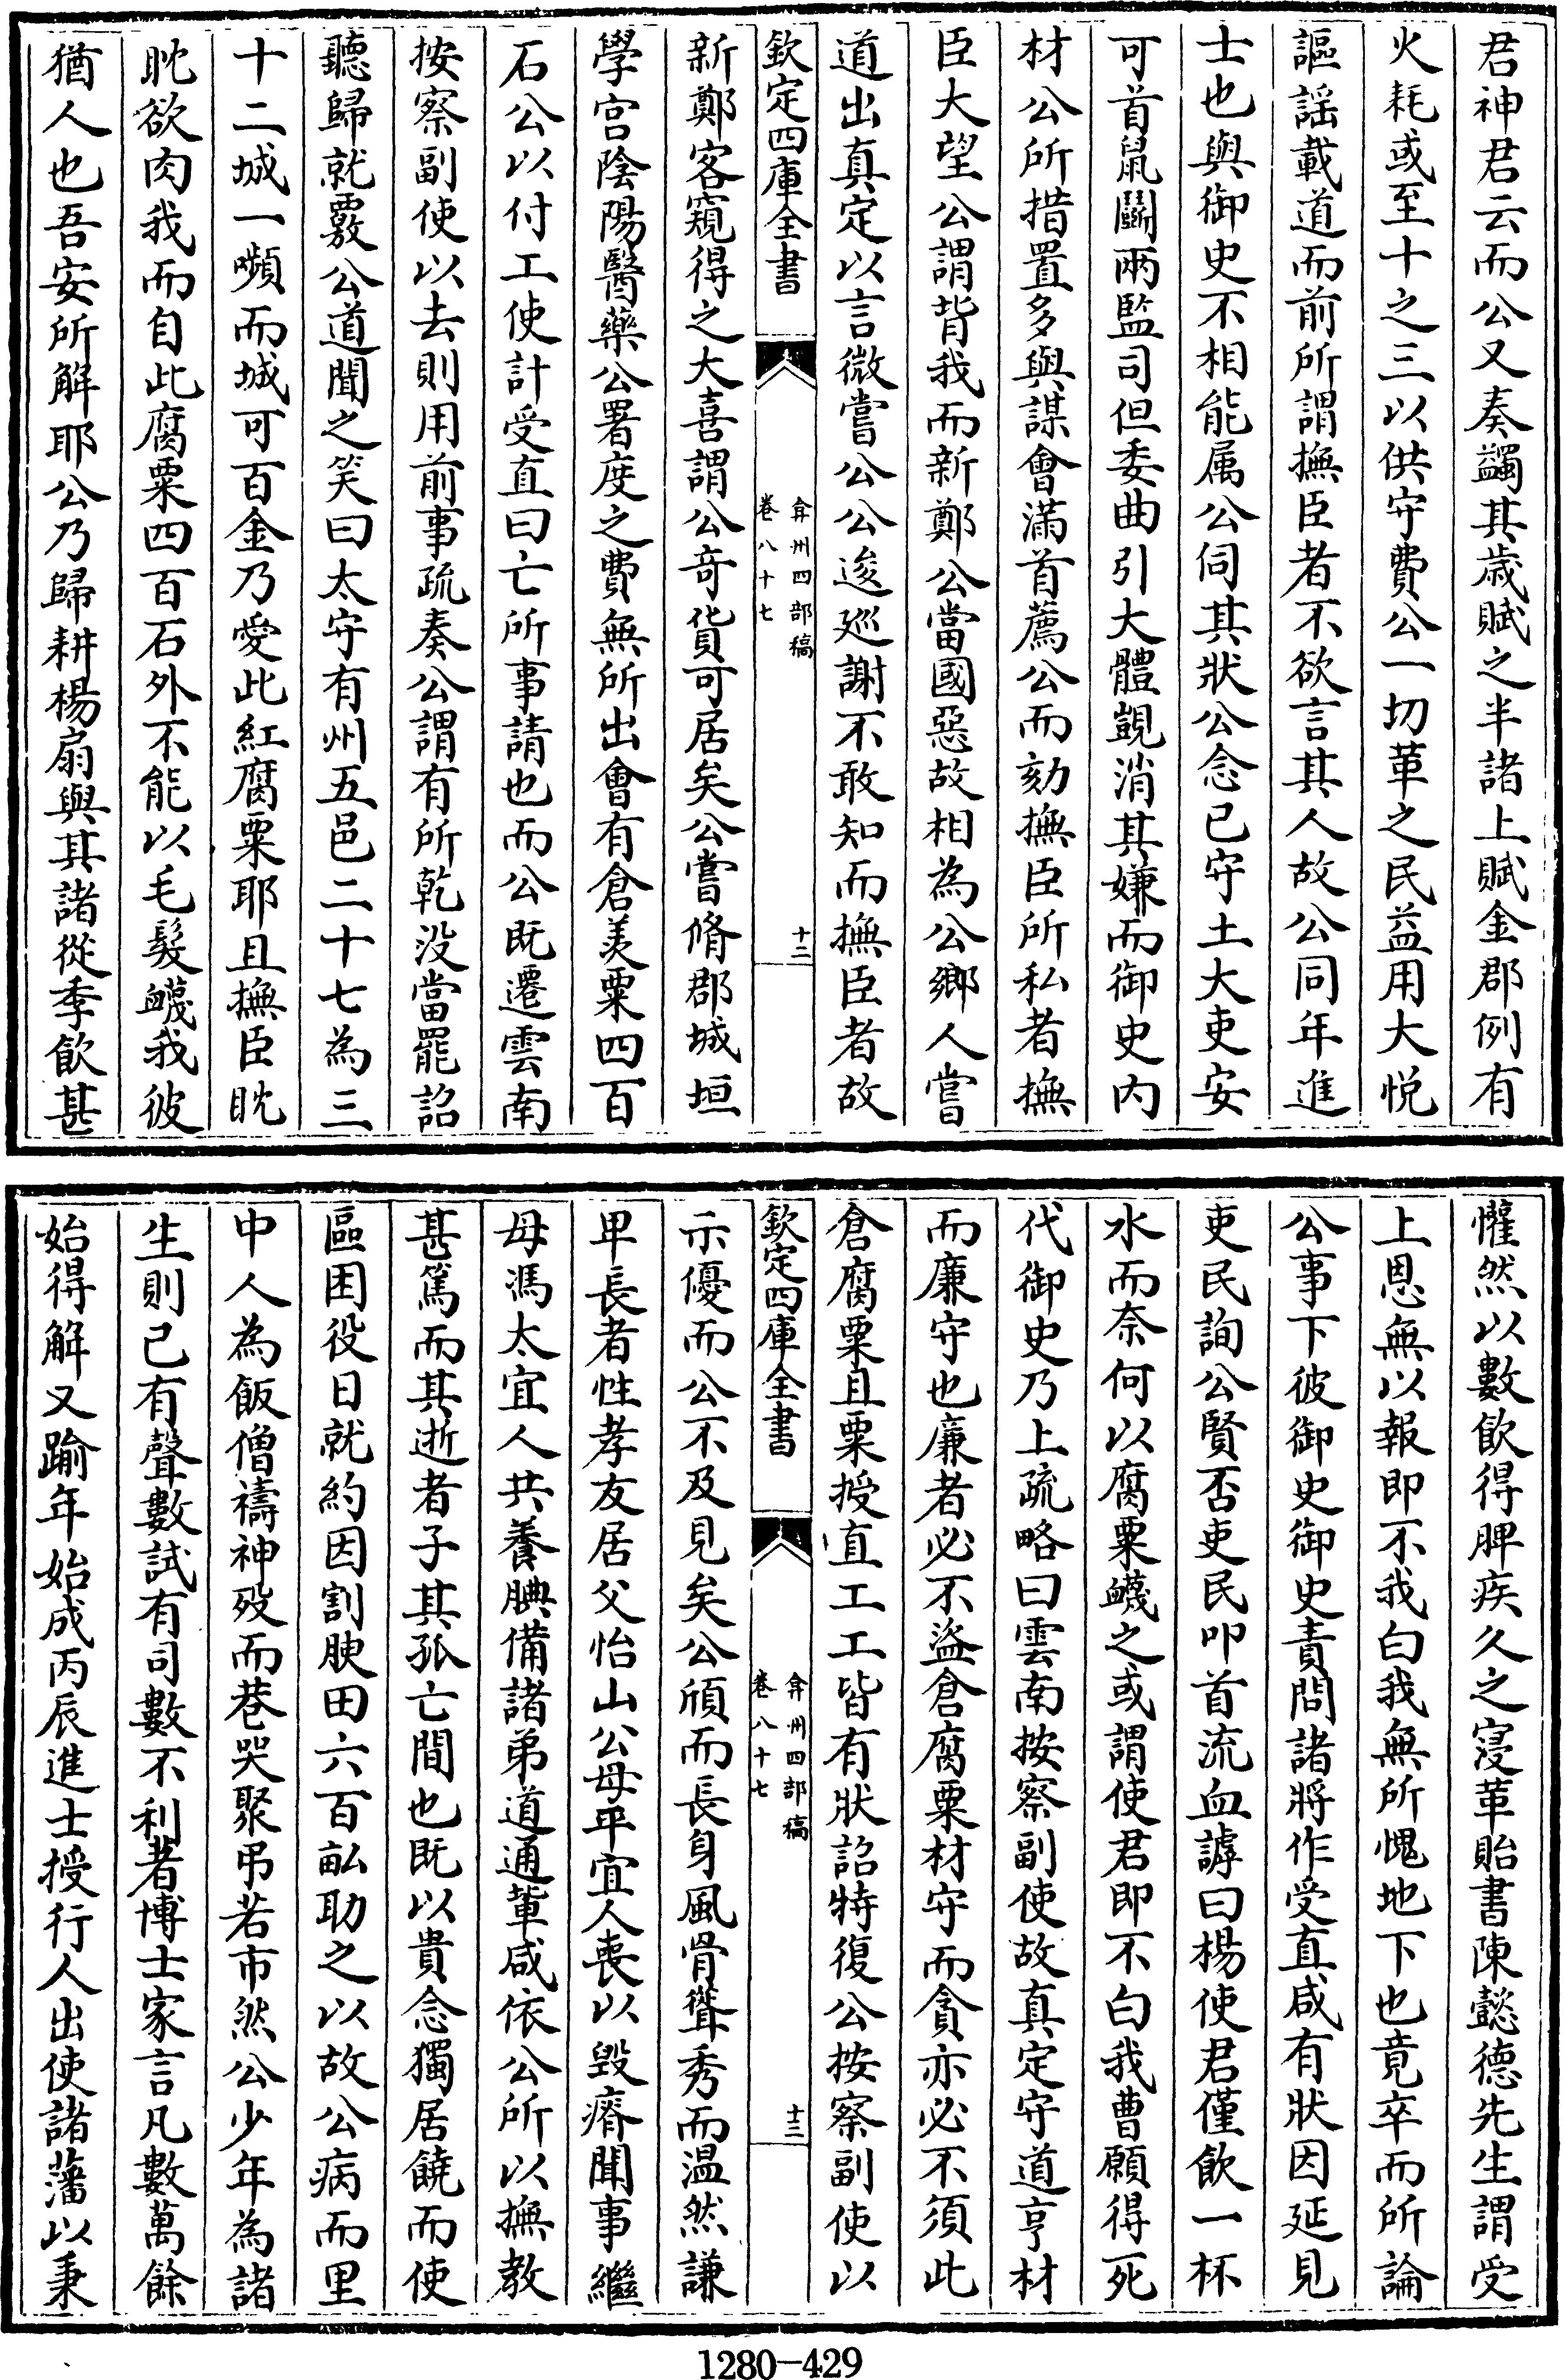 君神君云而公又奏蠲其歳賦之半諸上賦金郡例有
火耗或至十之三以供守費公一切革之民益用大悦
謳謡載道而前所謂撫臣者不欲言其人故公同年進
士也與御史不相能属公伺其狀公念已守土大吏安
可首䑕鬭兩監司但委曲引大體覬消其嫌而御史内
材公所措置多與謀會滿首薦公而劾撫臣所私者撫
臣大望公謂背我而新鄭公當國惡故相為公鄉人嘗
道出真定以言微嘗公公逡廵謝不敢知而撫臣者故
欽定四庫全書
弇州四部稿
卷八十七
十二
新鄭客窺得之大喜謂公竒貨可居矣公嘗脩郡城垣
學宫陰陽醫藥公署度之費無所出會有倉羨粟四百
石公以付工使計受直曰亡所事請也而公既遷雲南
按察副使以去則用前事疏奏公謂有所乾没當罷詔
聽歸就覈公道聞之笑曰太守有州五邑二十七為三
十二城一嚬而城可百金乃愛此紅腐粟耶且撫臣眈
眈欲肉我而自此腐粟四百石外不能以毛髮衊我彼
猶人也吾安所解耶公乃歸耕楊扇與其諸從季飲甚
懽然以數飲得脾疾久之寖革貽書陳懿德先生謂受
上恩無以報即不我白我無所愧地下也竟卒而所論
公事下彼御史御史責問諸將作受直咸有狀因延見
吏民詢公賢否吏民叩首流血謼曰楊使君僅飲一杯
水而奈何以腐粟衊之或謂使君即不白我曹願得死
代御史乃上疏略曰雲南按察副使故真定守道亨材
而廉守也廉者必不盜倉腐粟材守而貪亦必不須此
倉腐粟且粟授直工工皆有狀詔特復公按察副使以
欽定四庫全書
弇州四部稿
卷八十七
十三
示優而公不及見矣公頎而長身風骨聳秀而温然謙
卑長者性孝友居父怡山公母平宜人喪以毁瘠聞事繼
母馮太宜人共養腆備諸弟道通軰咸依公所以撫教
甚篤而其逝者子其孤亡間也既以貴念獨居饒而使
區困役日就約因割腴田六百畝助之以故公病而里
中人為飯僧禱神殁而巷哭聚弔若市然公少年為諸
生則已有聲數試有司數不利者博士家言凡數萬餘
始得解又踰年始成丙辰進士授行人出使諸藩以秉
1280-429